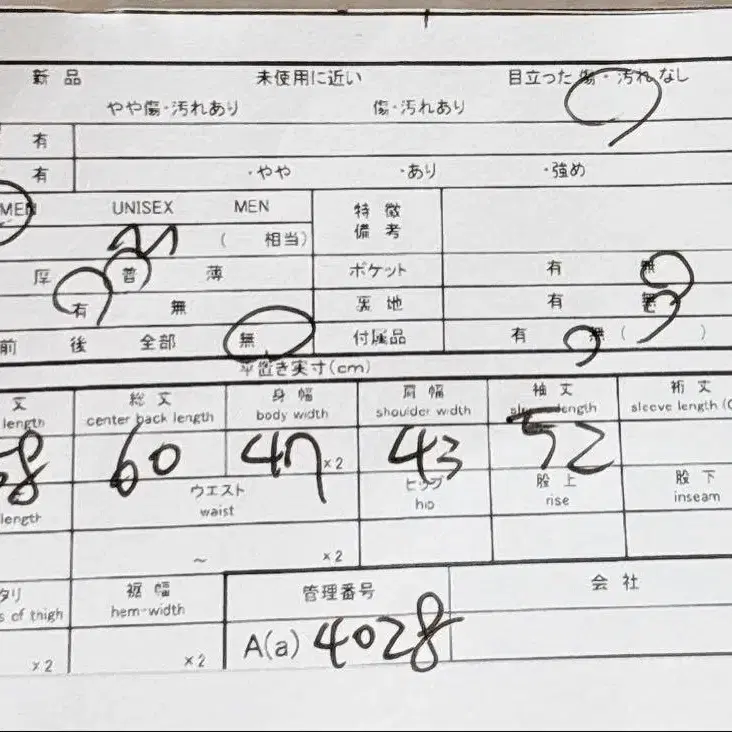 新品 未使用に近い 目立った傷・汚れなし
やや傷・汚れあり 傷・汚れあり
有
有 ・やや ・あり ・強め
MEN UNISEX MEN 特徴
( 相当) 備考
厚 普 薄 ポケット 有 無
有 無 裏地 有 無
前 後 全部 無 付属品 有 無 ( )
平置き実寸(cm)
丈 総丈 身幅 肩幅 袖丈 裄丈
length center back length body width shoulder width sleeve length sleeve length (
68 60 47 ×2 43 52
ウエスト ヒップ 股上 股下
length waist hip rise inseam
~ ×2
タリ 裾幅 管理番号 会社
s of thigh hem-width
×2 ×2 A(a) 4028